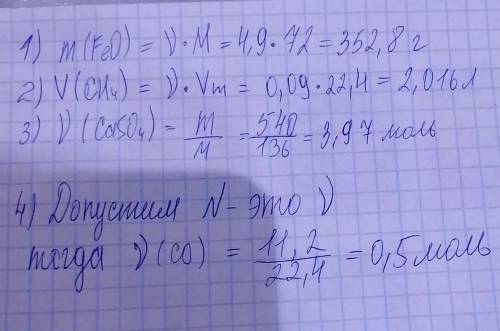 1) m(FeO) = ν·M = 4,9·72 = 352,8 г
2) V(CH₄) = ν·Vm = 0,09·22,4 = 2,016 л
3) ν(CaSO₄) = m/M = 540/136 = 3,97 моль
4) Допустим N - это ν
тогда ν(CO) = 11,2/22,4 = 0,5 моль